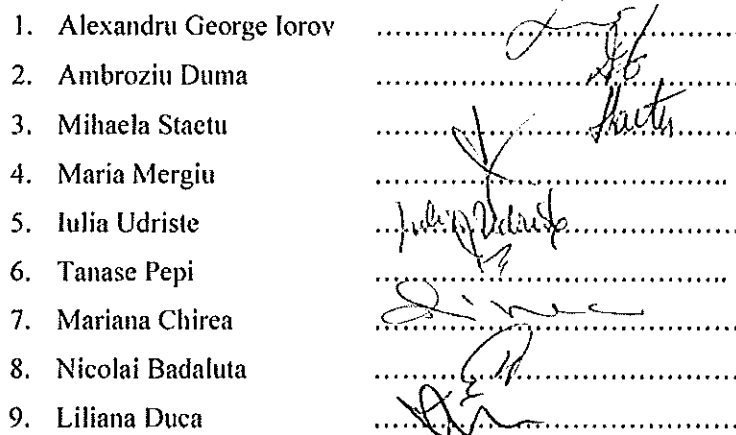 1. Alexandru George Iorov ..........
2. Ambroziu Duma ..........
3. Mihaela Staetu ..........
4. Maria Mergiu ..........
5. Iulia Udriste .......... Iulia Udriste
6. Tanase Pepi ..........
7. Mariana Chirea ..........
8. Nicolai Badaluta ..........
9. Liliana Duca ..........